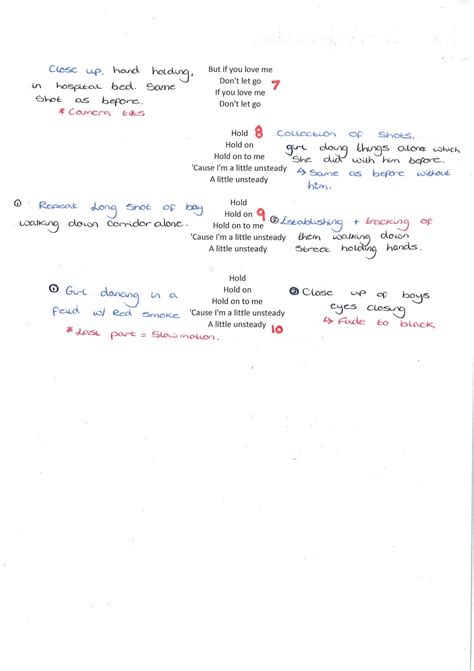 Close up, hand holding,
in hospital bed. Same
Shot as before.
* Camera tilts
But if you love me
Don't let go
If you love me
Don't let go
7
Hold
Hold on
Hold on to me
'Cause I'm a little unsteady
A little unsteady
8
Collection of Shots.
girl doing things alone which
She did with him before.
↳ Same as before without
him.
① Repeat Long Shot of boy
walking down corridor alone.
Hold
Hold on
Hold on to me
'Cause I'm a little unsteady
A little unsteady
9
② Establishing + tracking of
them walking down
Street holding hands.
① Girl dancing in a
feild w/ Red Smoke
* Last part = Slowmotion.
Hold
Hold on
Hold on to me
'Cause I'm a little unsteady
A little unsteady
10
② Close up of boys
eyes closing
↳ Fade to black